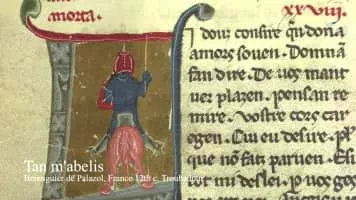 morta.
xxviii.
douz consire qu dona
amors souen. Domna
fan dire. De uos mant
uer plazen. pensan re
mire. Vostre cors car
e gen. Cui eu desire. pl
que no fatz paruen. E si
tot mi deslei. P uos ges
Tan m'abelis
Berenguier de Palazol, Franco 12th c. Troubadour